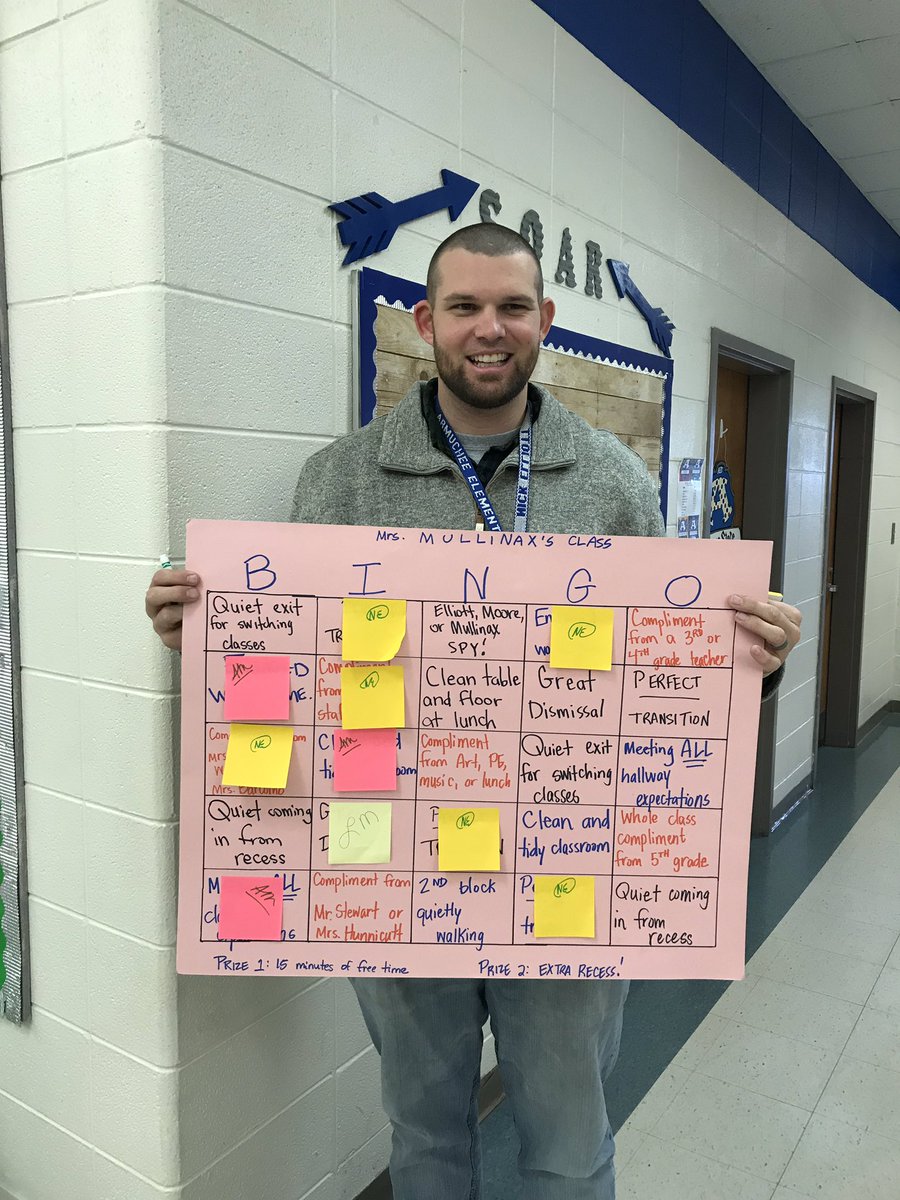 SOAR
ARMUCHEE ELEMENT
NICK ELLIOTT
Mrs. MULLINAX'S CLASS
B I N G O
Quiet exit
for switching
classes
NE
Elliott, Moore,
or Mullinax
SPY!
NE
Compliment
from a 3RD or
4TH grade teacher
AM
Compliment
from
NE
Clean table
and floor
at lunch
Great
Dismissal
PERFECT
TRANSITION
NE
AM
Compliment
from Art, PE,
music, or lunch
Quiet exit
for switching
classes
Meeting ALL
hallway
expectations
Quiet coming
in from
recess
LM
NE
Clean and
tidy classroom
Whole class
compliment
from 5TH grade
ALL
AM
Compliment from
Mr. Stewart or
Mrs. Hunnicutt
2ND block
quietly
walking
NE
Quiet coming
in from
recess
PRIZE 1: 15 minutes of free time
PRIZE 2: EXTRA RECESS!